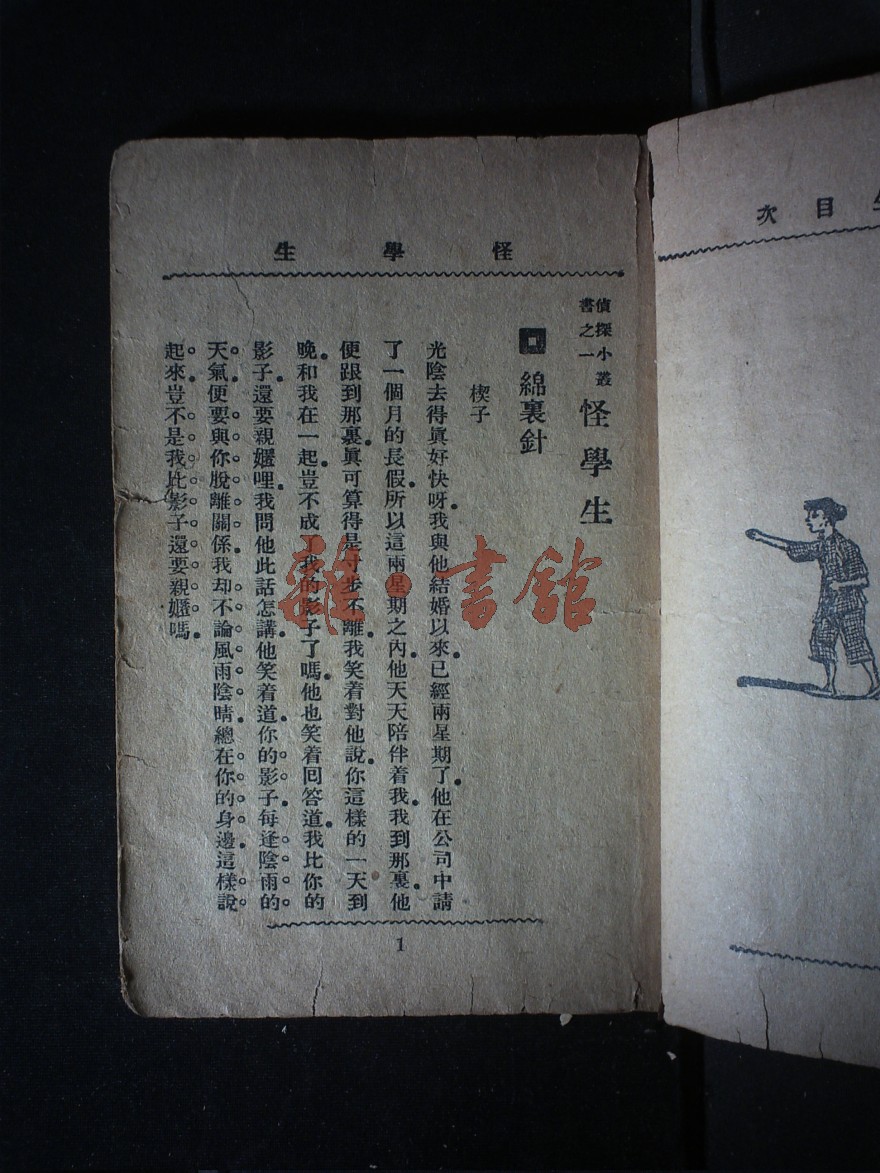 目次
怪學生
偵探小叢
書之一
怪學生
綿裏針
楔子
光陰去得眞好快呀。我與他結婚以來。已經兩星期了。他在公司中請
了一個月的長假。所以這兩星期之內。他天天陪伴着我。我到那裏。他
便跟到那裏。眞可算得是寸步不離。我笑着對他說。你這樣的一天到
晚。和我在一起。豈不成了我的影子了嗎。他也笑着回答道。我比你的
影子還要親嫟哩。我問他此話怎講。他笑着道。你的影子。每逢陰雨的
天氣。便要與你脫離關係。我却不論風雨陰晴。總在你的身邊。這樣說
起來。豈不是我比影子還要親嫟嗎。
1
雜·書館